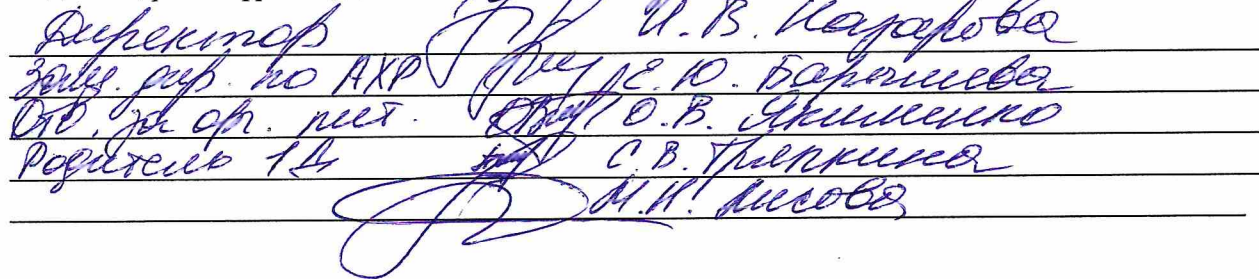 Директор И. В. Назарова
Зам. дир. по АХР Е. Ю. Барышева
Отв. за орг. пит. О. В. Якименко
Родитель 1Д С. В. Тряпкина
М. Н. Лисова